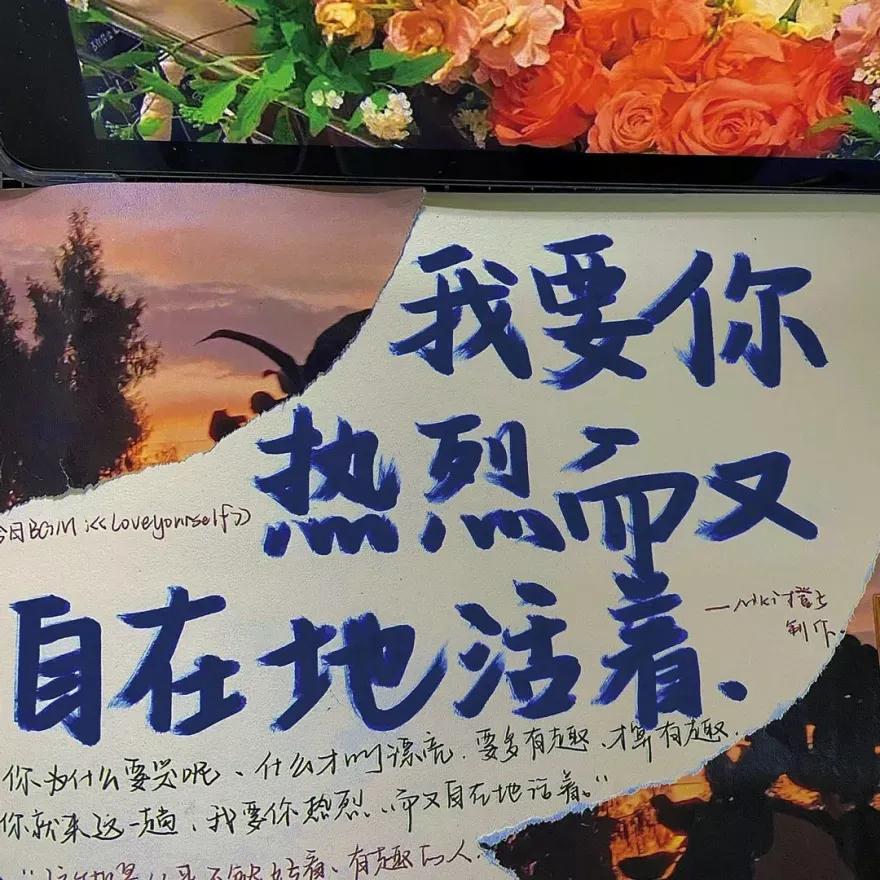 我要你
热烈而又
今日BGM:<<Loveyourself>>
自在地活着.
制作.
你为什么要哭呢、什么才叫漂亮.要多有趣、才算有趣.
你就来这一趟,我要你热烈..而又自在地活着。"
有趣的人.